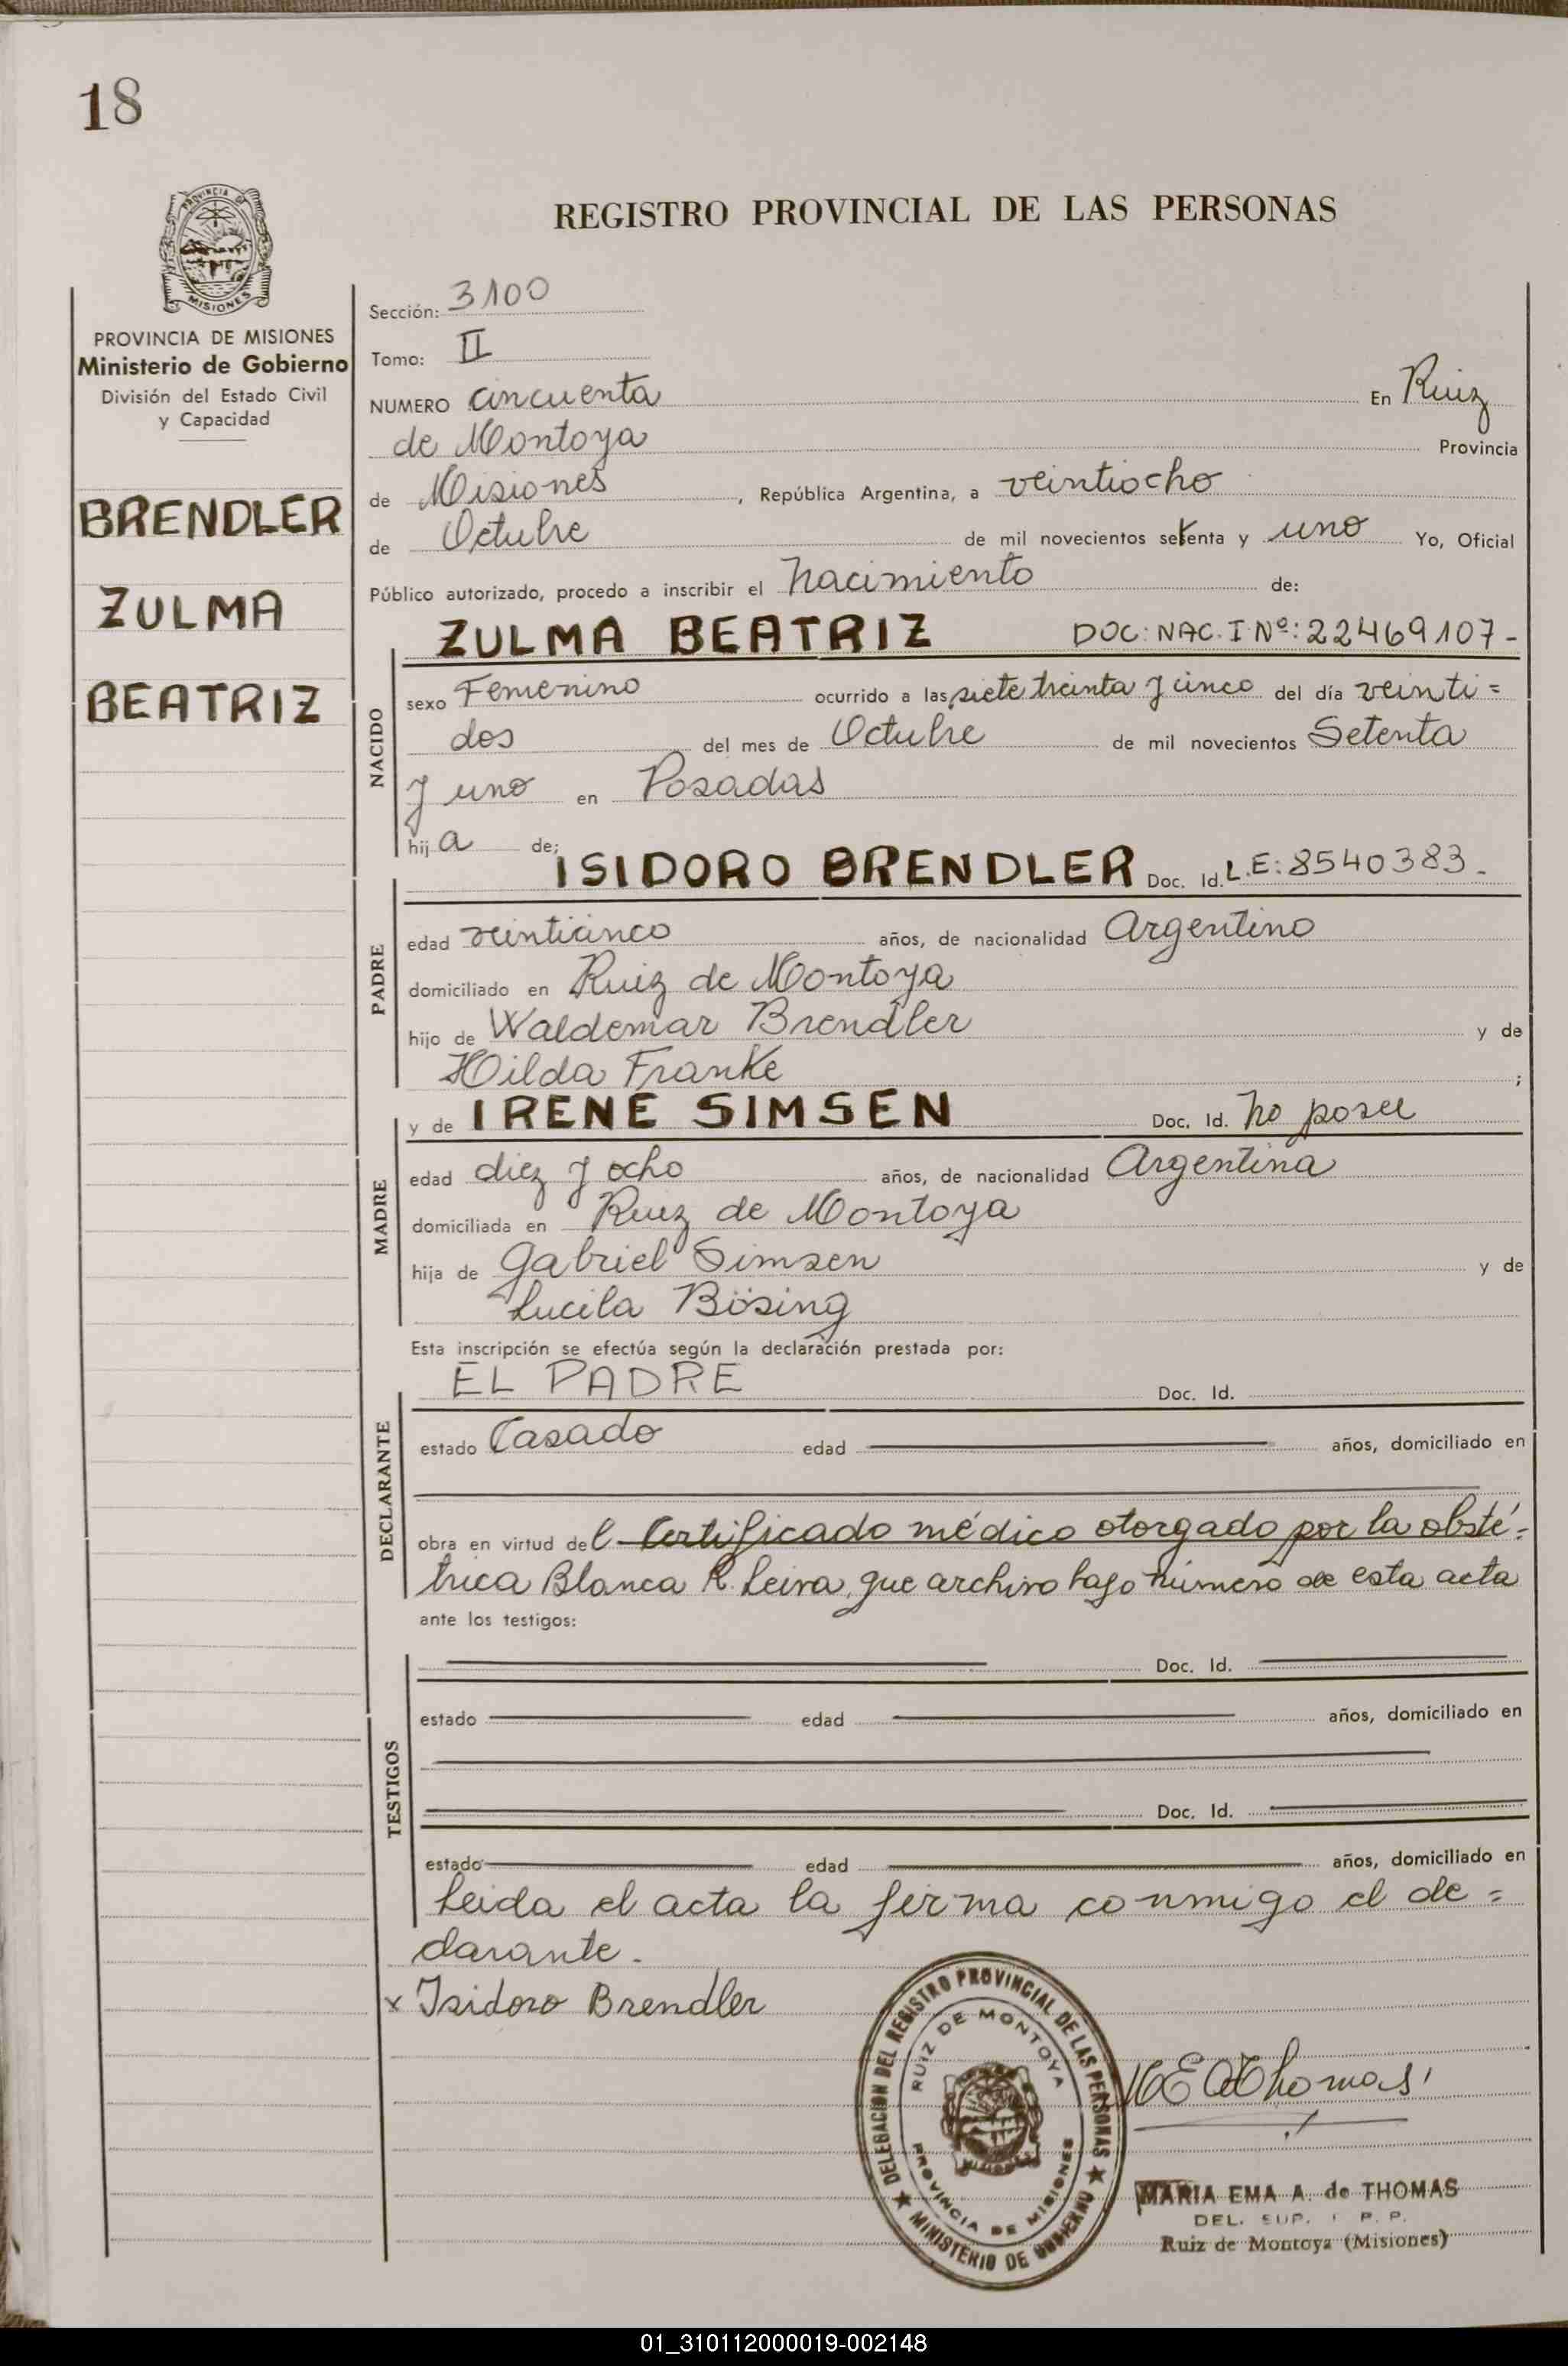 18
PROVINCIA DE
MISIONES
REGISTRO PROVINCIAL DE LAS PERSONAS
PROVINCIA DE MISIONES
Ministerio de Gobierno
División del Estado Civil
y Capacidad
BRENDLER
ZULMA
BEATRIZ
Sección: 3100
Tomo: II
NUMERO cincuenta En Ruiz
de Montoya Provincia
de Misiones, República Argentina, a veintiocho
de Octubre de mil novecientos setenta y uno Yo, Oficial
Público autorizado, procedo a inscribir el nacimiento de:
ZULMA BEATRIZ DOC: NAC. I Nº: 22469107-
NACIDO
sexo Femenino ocurrido a las siete treinta y cinco del día veinti=
dos del mes de Octubre de mil novecientos Setenta
y uno en Posadas
hija de;
ISIDORO BRENDLER Doc. Id. L.E: 8540383.-
PADRE
edad veinticinco años, de nacionalidad Argentino
domiciliado en Ruiz de Montoya
hijo de Waldemar Brendler y de
Hilda Franke ;
y de IRENE SIMSEN Doc. Id. no posee
MADRE
edad diez y ocho años, de nacionalidad Argentina
domiciliada en Ruiz de Montoya
hija de Gabriel Simsen y de
Lucila Bösing
Esta inscripción se efectúa según la declaración prestada por:
EL PADRE Doc. Id.
DECLARANTE
estado Casado edad años, domiciliado en
obra en virtud del Certificado médico otorgado por la obsté=
trica Blanca R. Leiva, que archivo bajo número de esta acta
ante los testigos:
TESTIGOS
Doc. Id.
estado edad años, domiciliado en
Doc. Id.
estado edad años, domiciliado en
Leida el acta la firma conmigo el de=
clarante.
x Isidoro Brendler
DELEGACION DEL REGISTRO PROVINCIAL DE LAS PERSONAS
RUIZ DE MONTOYA
PROVINCIA DE MISIONES
★ MINISTERIO DE GOBIERNO ★
MARIA EMA A. de THOMAS
DEL. SUP. P. P.
Ruiz de Montoya (Misiones)
01_310112000019-002148